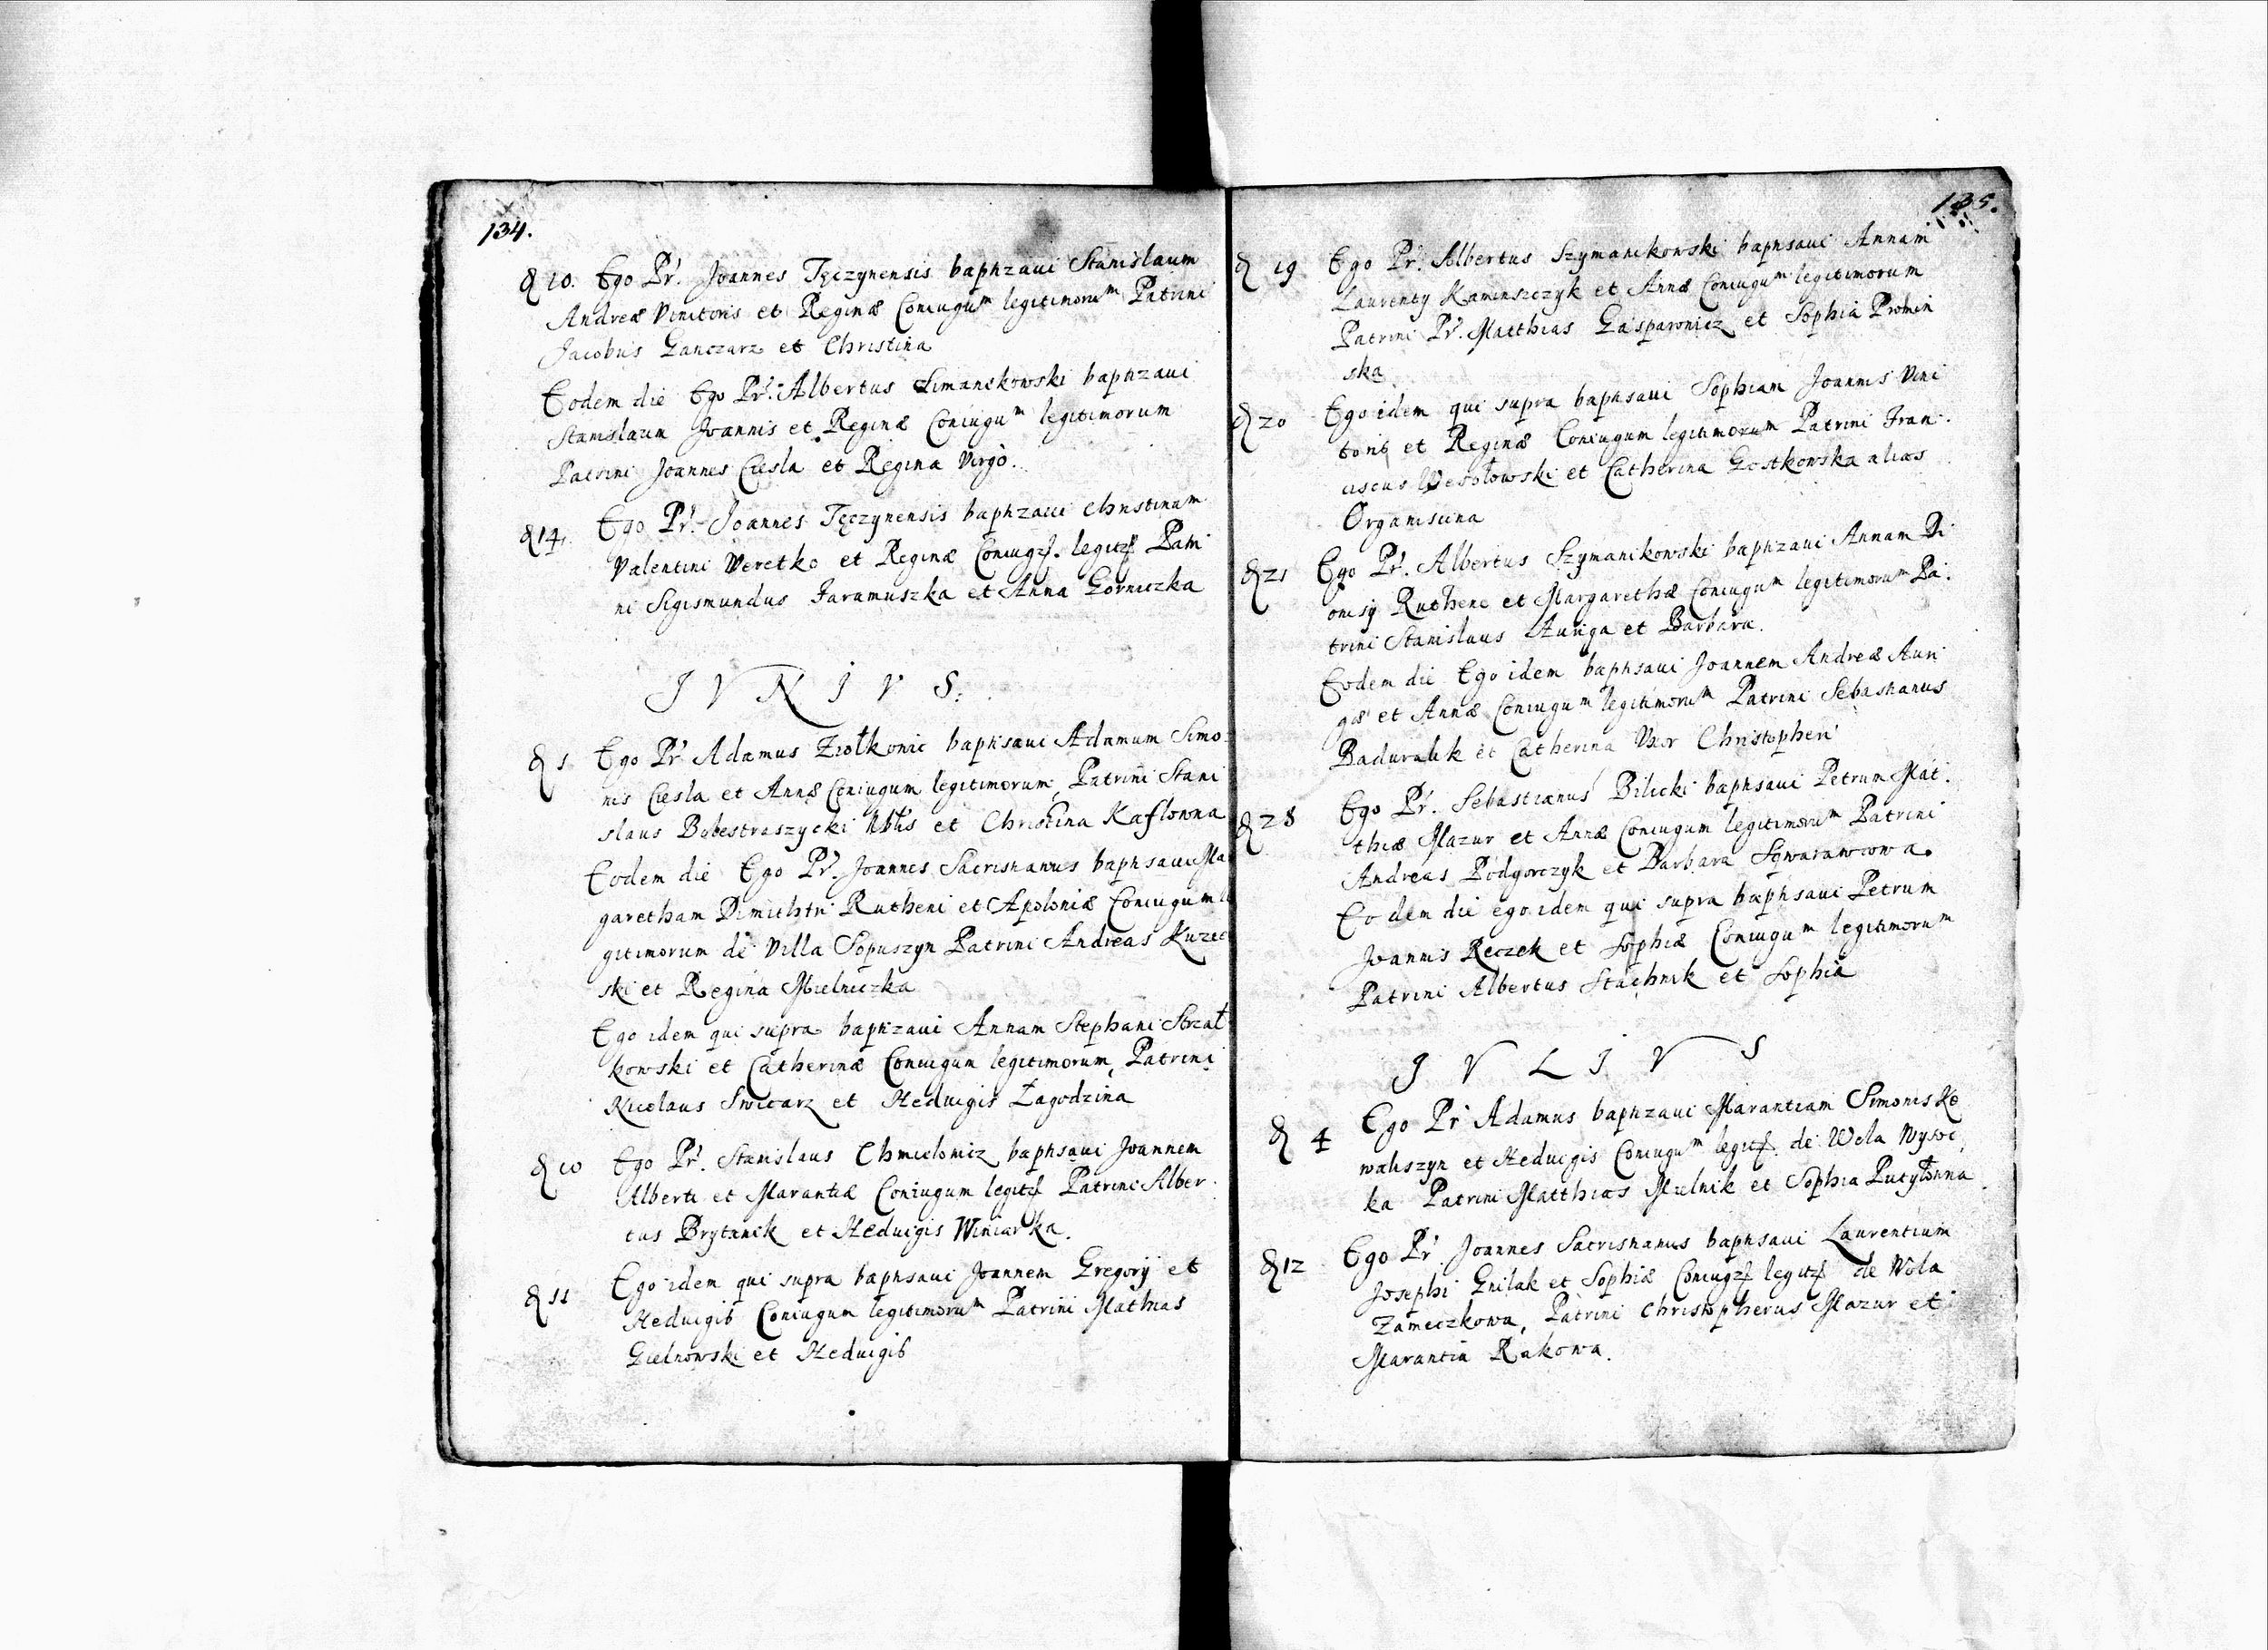 134.
d 10. Ego Pr. Joannes Tęczynensis baptizaui Stanislaum
Andreæ Vinitoris et Reginæ Coniugum legitimorum Patrini
Jacobus Ganczarz et Christina
Eodem die Ego Pr. Albertus Simanikowski baptizaui
Stanislaum Joannis et Reginæ Coniugum legitimorum
Patrini Joannes Ciesla et Regina Virgo.
d 14. Ego Pr. Joannes Tęczynensis baptizaui Christinam
Valentini Weretko et Reginæ Coniug. legit. Patri
ni Sigismundus Jaramuszka et Anna Gorniczka
JVNIVS.
d 1 Ego Pr Adamus Ziołkowic baptisaui Adamum Simo
nis Ciesla et Annæ Coniugum legitimorum, Patrini Stani
slaus Bobestraszycki Nblis et Christina Kaflowna
Eodem die Ego Pr. Joannes Sacristianus baptisaui Mar
garetham Dimithri Rutheni et Apoloniæ Coniugum le
gitimorum de Villa Sopuszyn Patrini Andreas
ski et Regina Mielniczka
Ego idem qui supra baptizaui Annam Stephani Strzał
kowski et Catherinæ Coniugum legitimorum, Patrini
Nicolaus Swicarz et Heduigis Łagodzina
d 10 Ego Pr. Stanislaus Chmielowicz baptisaui Joannem
Alberti et Marantiæ Coniugum legit. Patrini Alber
tus Brytanik et Heduigis Winiarka.
d 11 Ego idem qui supra baptisaui Joannem Gregorij et
Heduigis Coniugum legitimorum Patrini Mathias
Gielnowski et Heduigis
135.
d 19 Ego Pr. Albertus Szymanikowski baptisaui Annam
Laurenty Kaminszczyk et Annæ Coniugum legitimorum
Patrini Pr. Matthias Gasparowicz et Sophia Promin
ska
d 20 Ego idem qui supra baptisaui Sophiam Joannis Vini
toris et Reginæ Coniugum legitimorum Patrini Fran
ciscus Wesołowski et Catherina Gostkowska alias
Organiscina
d 21 Ego Pr. Albertus Szymanikowski baptizaui Annam Di
onisij Rutheni et Margarethæ Coniugum legitimorum Pa
trini Stanislaus Auriga et Barbara.
Eodem die Ego idem baptisaui Joannem Andreæ Auri
gæ et Annæ Coniugum legitimorum Patrini Sebastianus
Baduralik et Catherina Vxor Christopheri
d 28 Ego Pr. Sebastianus Bilicki baptisaui Petrum Mat
thiæ Mazur et Annæ Coniugum legitimorum Patrini
Andreas Podgorczyk et Barbara
Eodem die ego idem qui supra baptisaui Petrum
Joannis Reczek et Sophiæ Coniugum legitimorum
Patrini Albertus Stachnik et Sophia
JVLIVS
d 4 Ego Pr Adamus baptizaui Marantiam Simonis Ko
waliszyn et Heduigis Coniugum legit. de Wola Wysoc
ka Patrini Matthias Mielnik et Sophia Putyłowna
d 12 Ego Pr Joannes Sacristianus baptisaui Laurentium
Josephi Gnilak et Sophiæ Coniug. legit. de Wola
Zameczkowa, Patrini Christopherus Mazur et
Marantia Rakowa.